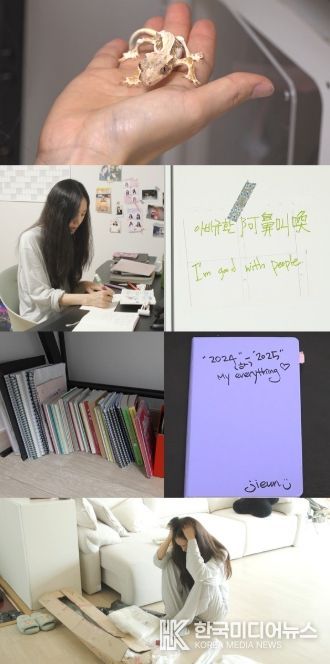 아비규환 阿鼻叫喚
I'm good with people.
"2024" - "2025"
My everything♡
jieun
한국미디어뉴스
KOREA MEDIA NEWS